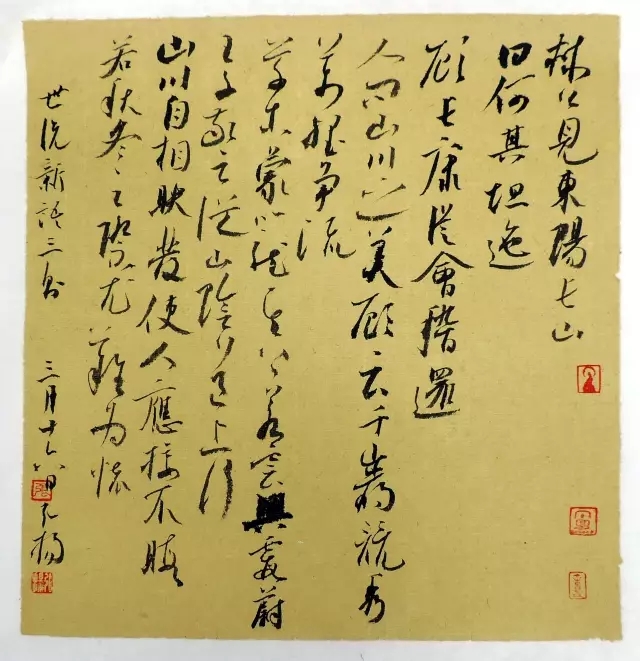 林公見東陽長山
曰何其坦迤
顧長康從會稽還
人問山川之美顧云千巖競秀
萬壑爭流
草木蒙籠其上若雲興霞蔚
王子敬云從山陰道上行
山川自相映發使人應接不暇
若秋冬之際尤難為懷
世說新語三則 三月十 日